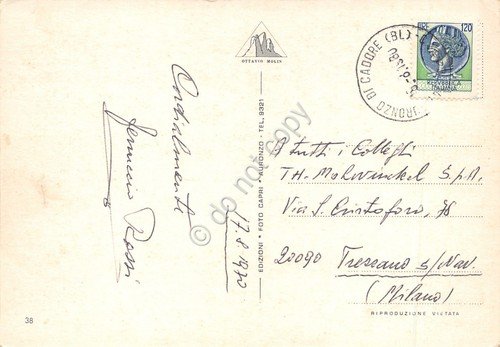 OTTAVIO MOLIN
Cordialmente
Ferruccio Rossi
17.8.1980
38
EDIZIONI * FOTO CAPRI * AURONZO - TEL. 9321
do not copy
LIRE 120
AURONZO DI CADORE (BL)
A tutti i Colleghi
TH. Mohwinckel S.p.A.
Via S. Cristoforo, 78
20090 Trezzano s/Nav.
(Milano)
RIPRODUZIONE VIETATA